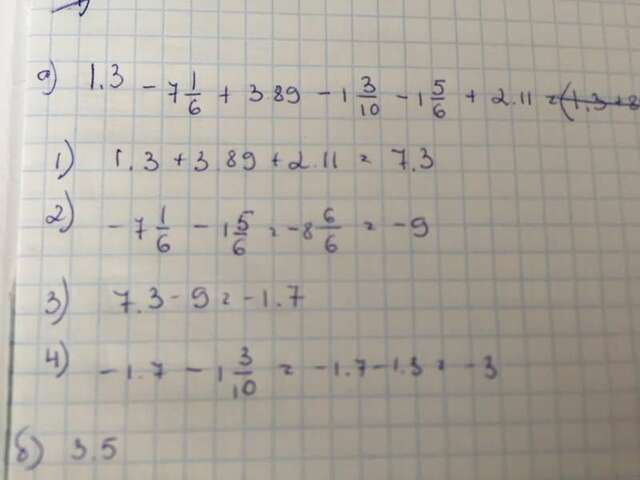 а) 1.3 - 7 1/6 + 3.89 - 1 3/10 - 1 5/6 + 2.11 = (1.3+8
1) 1.3 + 3.89 + 2.11 = 7.3
2) - 7 1/6 - 1 5/6 = - 8 6/6 = - 9
3) 7.3 - 9 = - 1.7
4) - 1.7 - 1 3/10 = - 1.7 - 1.3 = - 3
б) 3.5